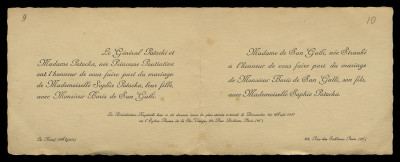 9
10
Le Général Potocki et
Madame Potocka, née Princesse
ont l'honneur de vous faire part du mariage
de Mademoiselle Sophie Potocka, leur fille,
avec Monsieur Boris de San Galli.
Madame de San Galli, née
a l'honneur de vous faire part du mariage
de Monsieur Boris de San Galli, son fils,
avec Mademoiselle Sophie Potocka.
La Bénédiction Nuptiale leur a été donnée dans la plus stricte intimité le Dimanche
à l'Église Russe de la